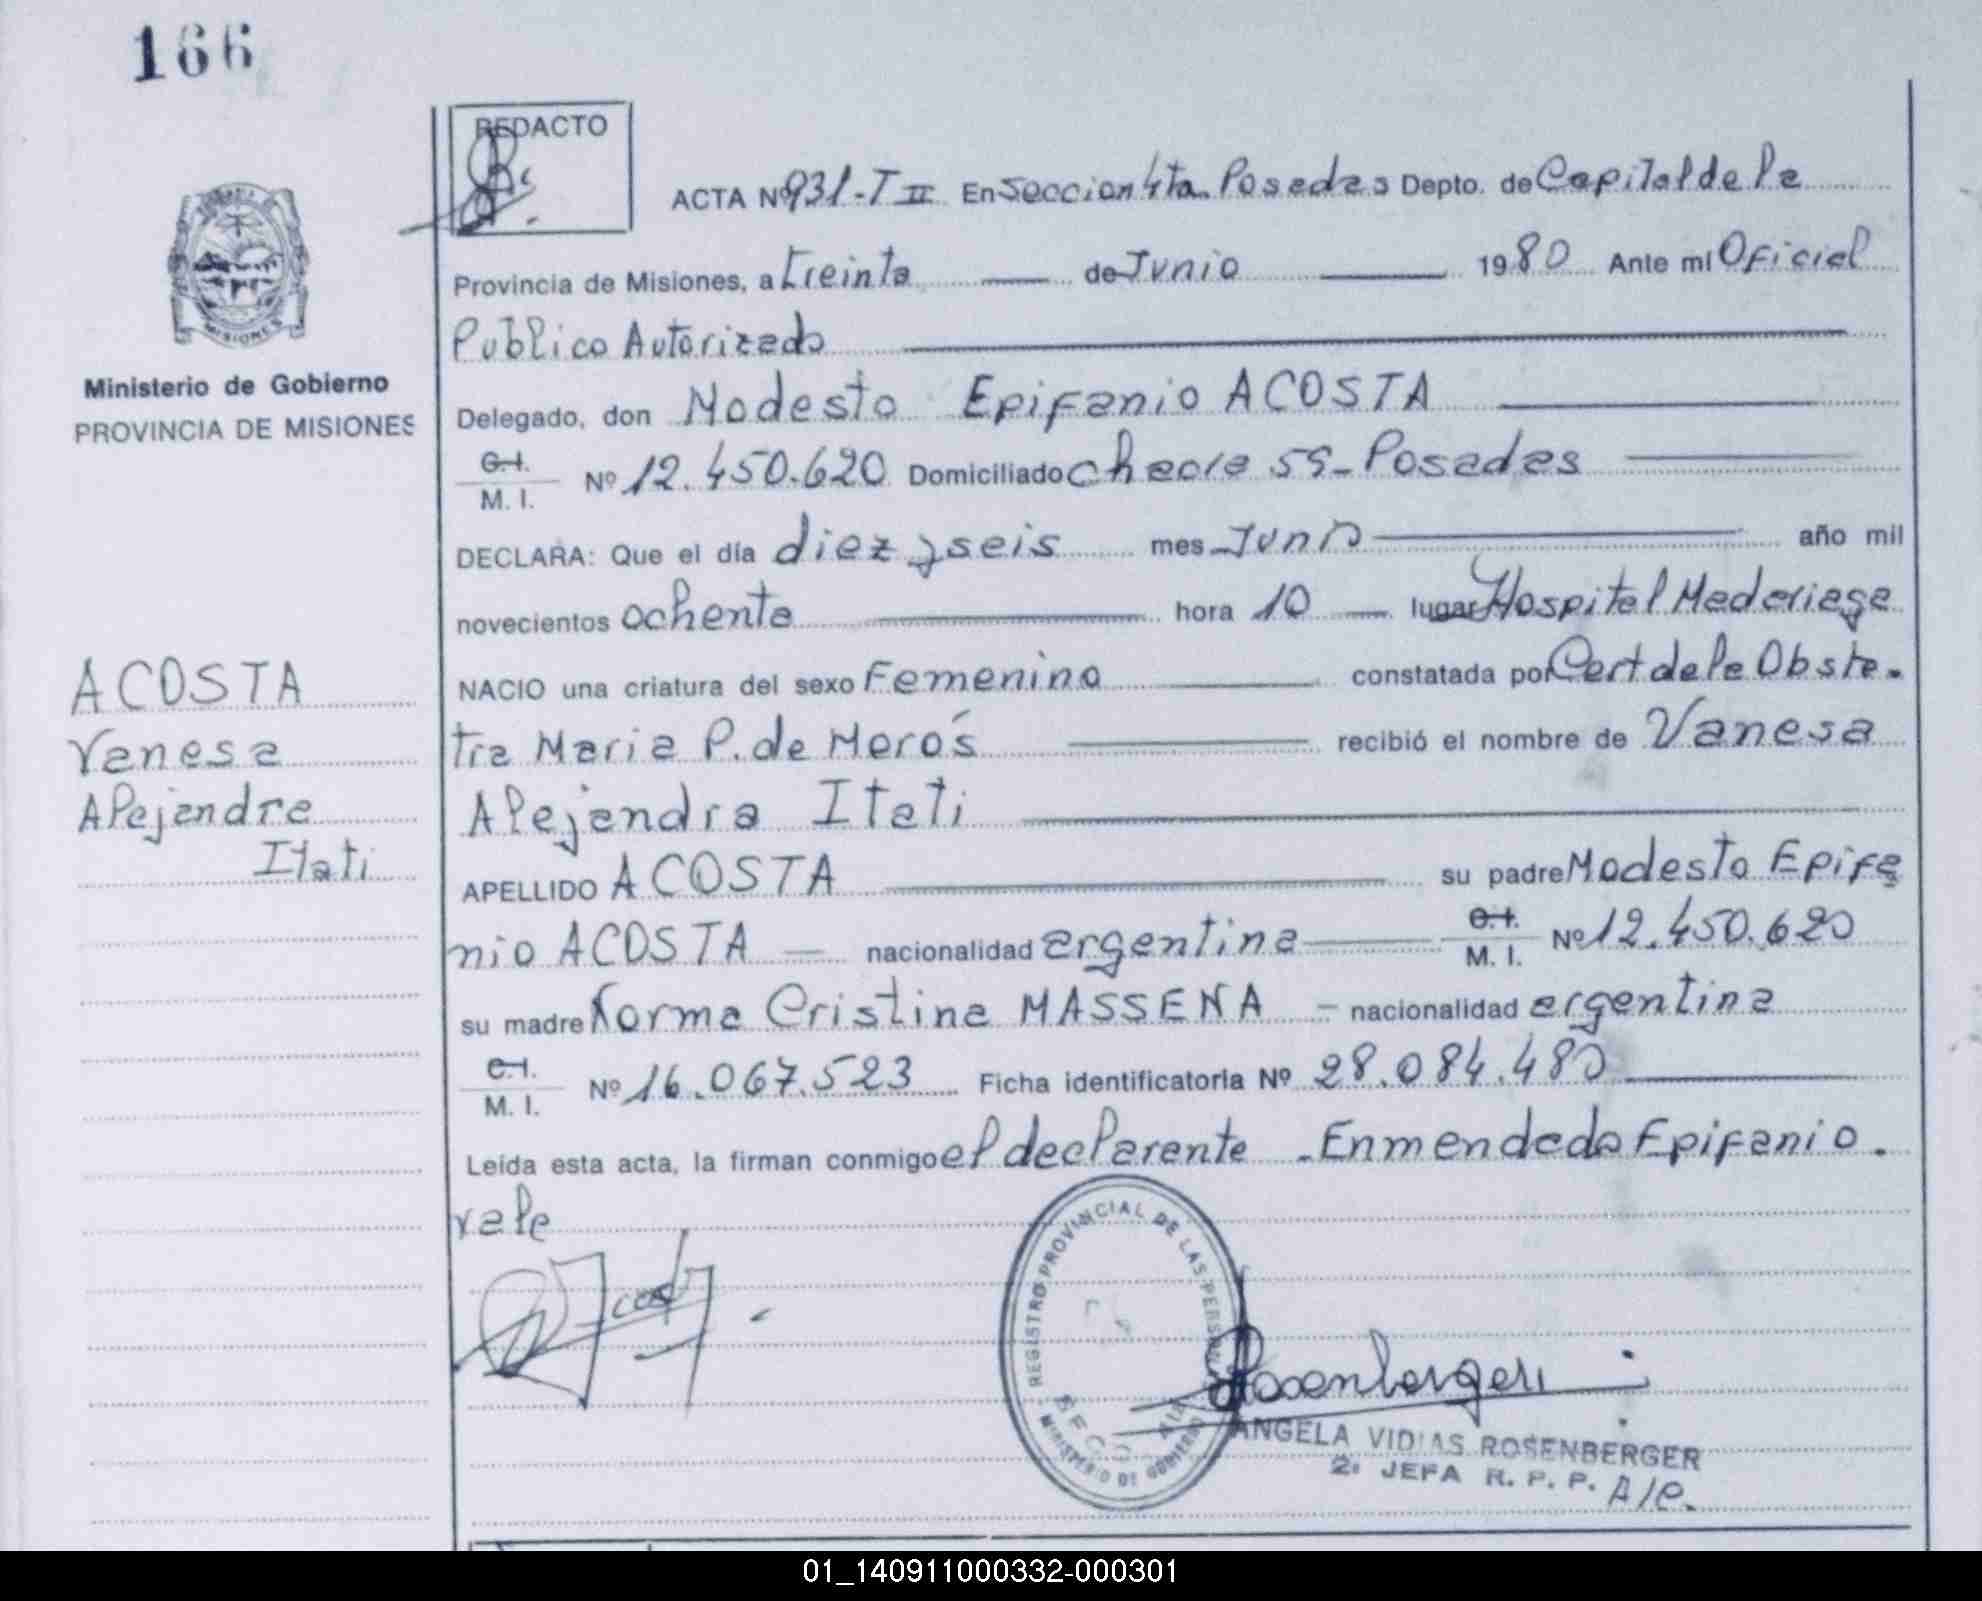 166
REDACTO
ACTA Nº 931-T II En Seccion 4ta Posadas Depto. de Capital de la
Provincia de Misiones, a treinta de Junio 1980 Ante mi Oficial
Publico Autorizado
Delegado, don Modesto Epifanio ACOSTA
C.I.
M. I. Nº 12.450.620 Domiciliado 59 - Posadas
DECLARA: Que el día diez y seis mes Junio año mil
novecientos ochenta hora 10 lugar Hospital Madariaga
NACIO una criatura del sexo Femenino constatada por Cert de la Obste-
tra Maria P. de Meros recibió el nombre de Vanesa
Alejandra Itati
APELLIDO ACOSTA su padre Modesto Epifa
nio ACOSTA nacionalidad argentina C.I. M. I. Nº 12.450.620
su madre Norma Cristina MASSENA - nacionalidad argentina
C.I.
M. I. Nº 16.067.523 Ficha identificatoria Nº 28.084.480
Leída esta acta, la firman conmigo el declarante - Enmendado Epifanio.
vale
Ministerio de Gobierno
PROVINCIA DE MISIONES
ACOSTA
Vanesa
Alejandra
Itati
MISIONES
REGISTRO PROVINCIAL DE LAS
MINISTERIO DE GOBIERNO
Rosenberger
ANGELA VIDIAS ROSENBERGER
2ª JEFA R. P. P. A/C.
01_140911000332-000301